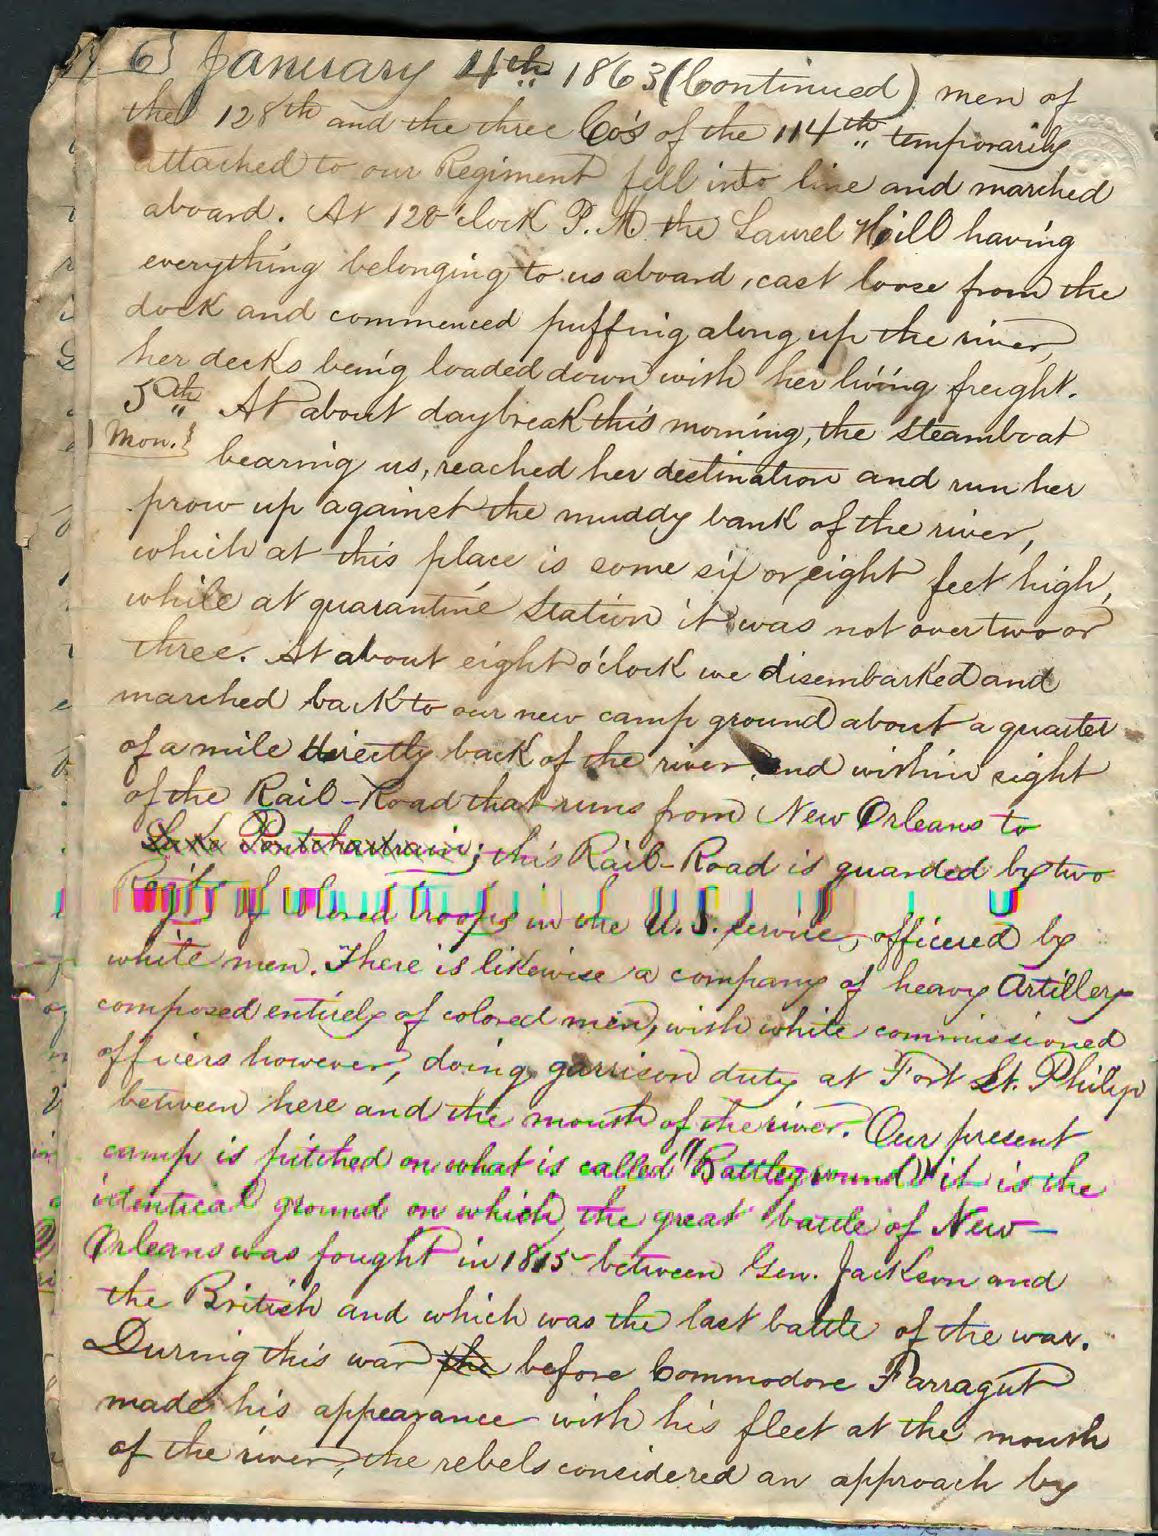 6} January 4th 1863 (Continued) men of
the 128th and the three Co's of the 114th temporarily
attached to our Regiment fell into line and marched
aboard. At 12 o'clock P.M. the Laurel Hill having
everything belonging to us aboard, cast loose from the
dock and commenced puffing along up the river,
her decks being loaded down with her living freight.
5th At about daybreak this morning, the steamboat
Mon.} bearing us, reached her destination and run her
prow up against the muddy bank of the river,
which at this place is some six or eight feet high,
while at quarantine station it was not over two or
three. At about eight o'clock we disembarked and
marched back to our new camp ground about a quarter
of a mile directly back of the river and within sight
of the Rail-Road that runs from New Orleans to
Lake Pontchartrain; this Rail-Road is guarded by two
Reg'ts of colored troops in the U.S. service, officered by
white men. There is likewise a company of heavy Artillery
composed entirely of colored men, with white commissioned
officers however, doing garrison duty at Fort St. Philip
between here and the mouth of the river. Our present
camp is pitched on what is called "Battleground" it is the
identical ground on which the great battle of New-
Orleans was fought in 1815 between Gen. Jackson and
the British and which was the last battle of the war.
During this war the before Commodore Farragut
made his appearance with his fleet at the mouth
of the river, the rebels considered an approach by